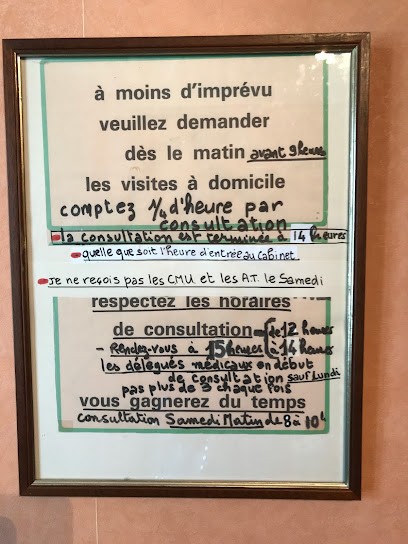 à moins d'imprévu
veuillez demander
dès le matin avant 9 heures
les visites à domicile
comptez 1/4 d'heure par
consultation
la consultation est terminée à 14 heures
quelle que soit l'heure d'entrée au cabinet
Je ne reçois pas les CMU et les A.T. le Samedi
respectez les horaires
de consultation de 12 heures
- Rendez-vous à 15 heures à 14 heures
les délégués médicaux en début
de consultation sauf Lundi
pas plus de 3 chaque fois
vous gagnerez du temps
consultation Samedi Matin de 8 à 10h